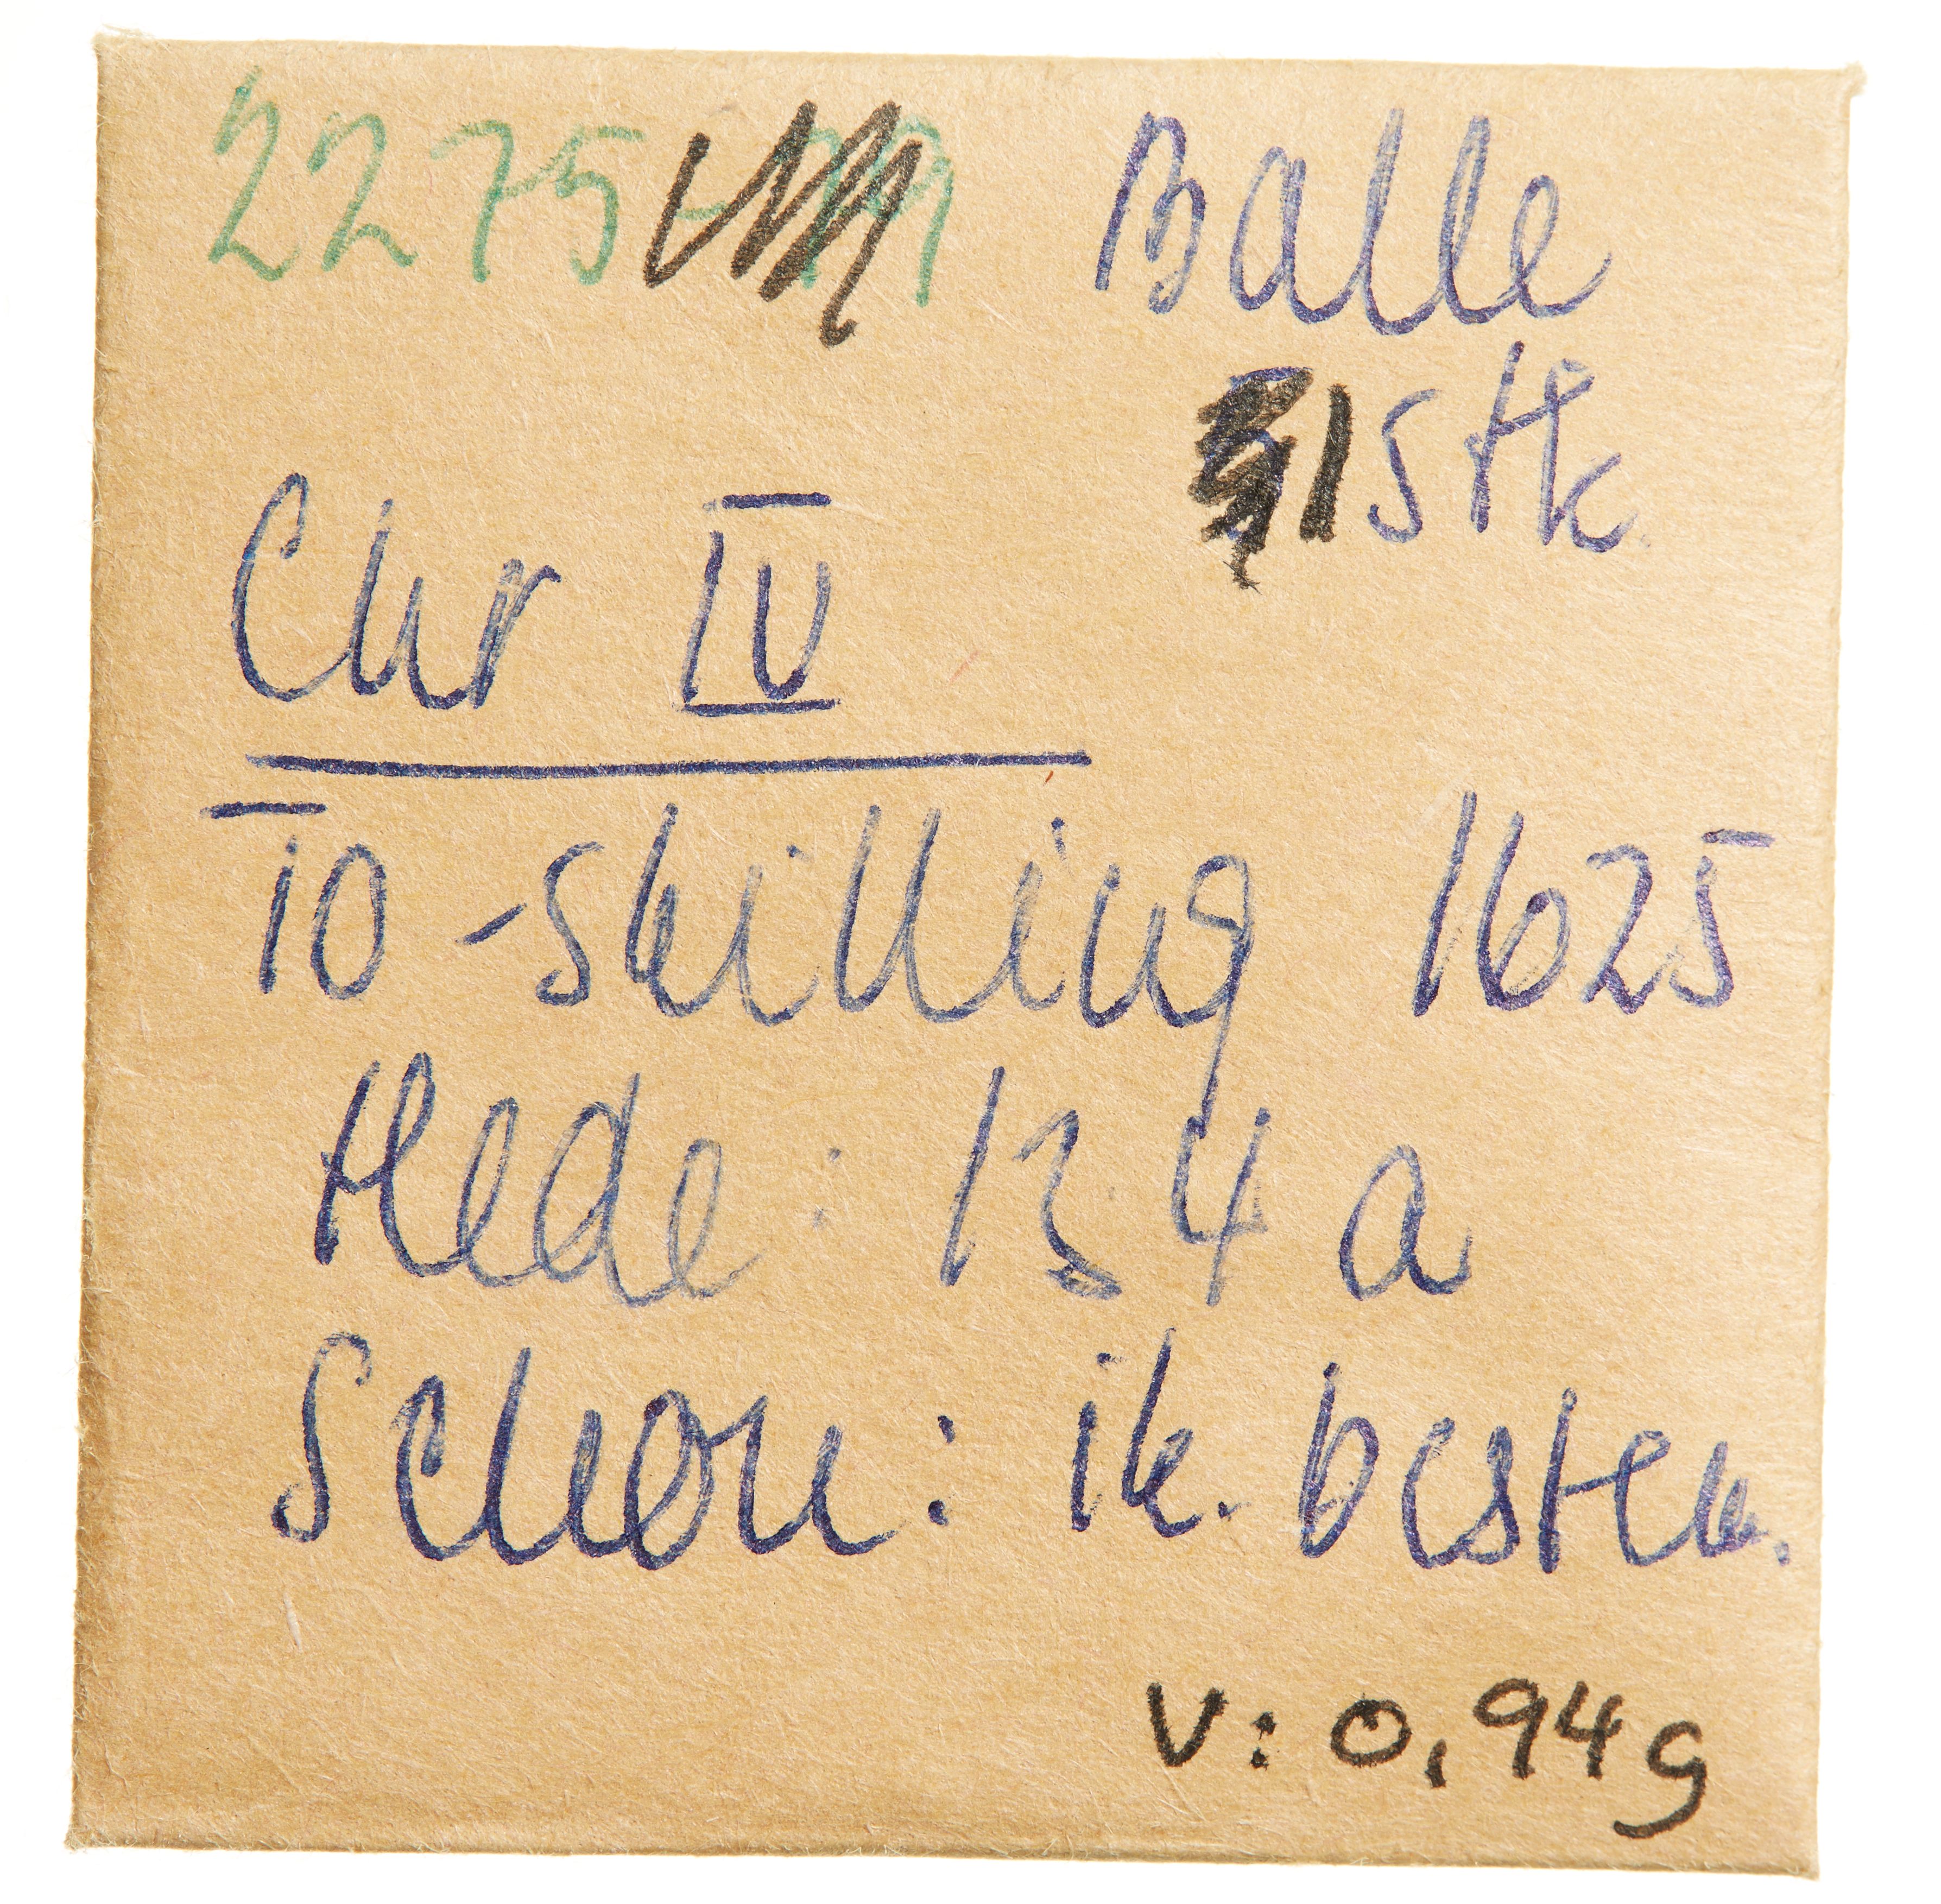 2275 Balle
1 Stk
Chr IV
To-skilling 1625
Hede: 134 a
Schou: ik. bestem.
V: 0,94g